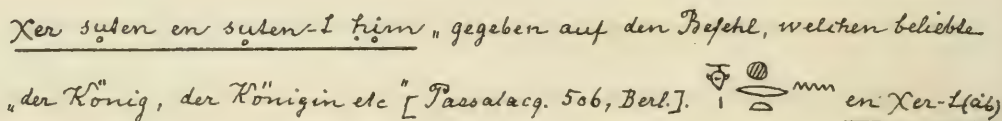 Xer suten en suten-t him „gegeben auf den Befehl, welchen beliebte
„der König, der Königin etc" [Passalacq. 506, Berl.]. 𓁷𓏤 𓐍𓂋𓏏 𓈖 en Xer-t (áb)